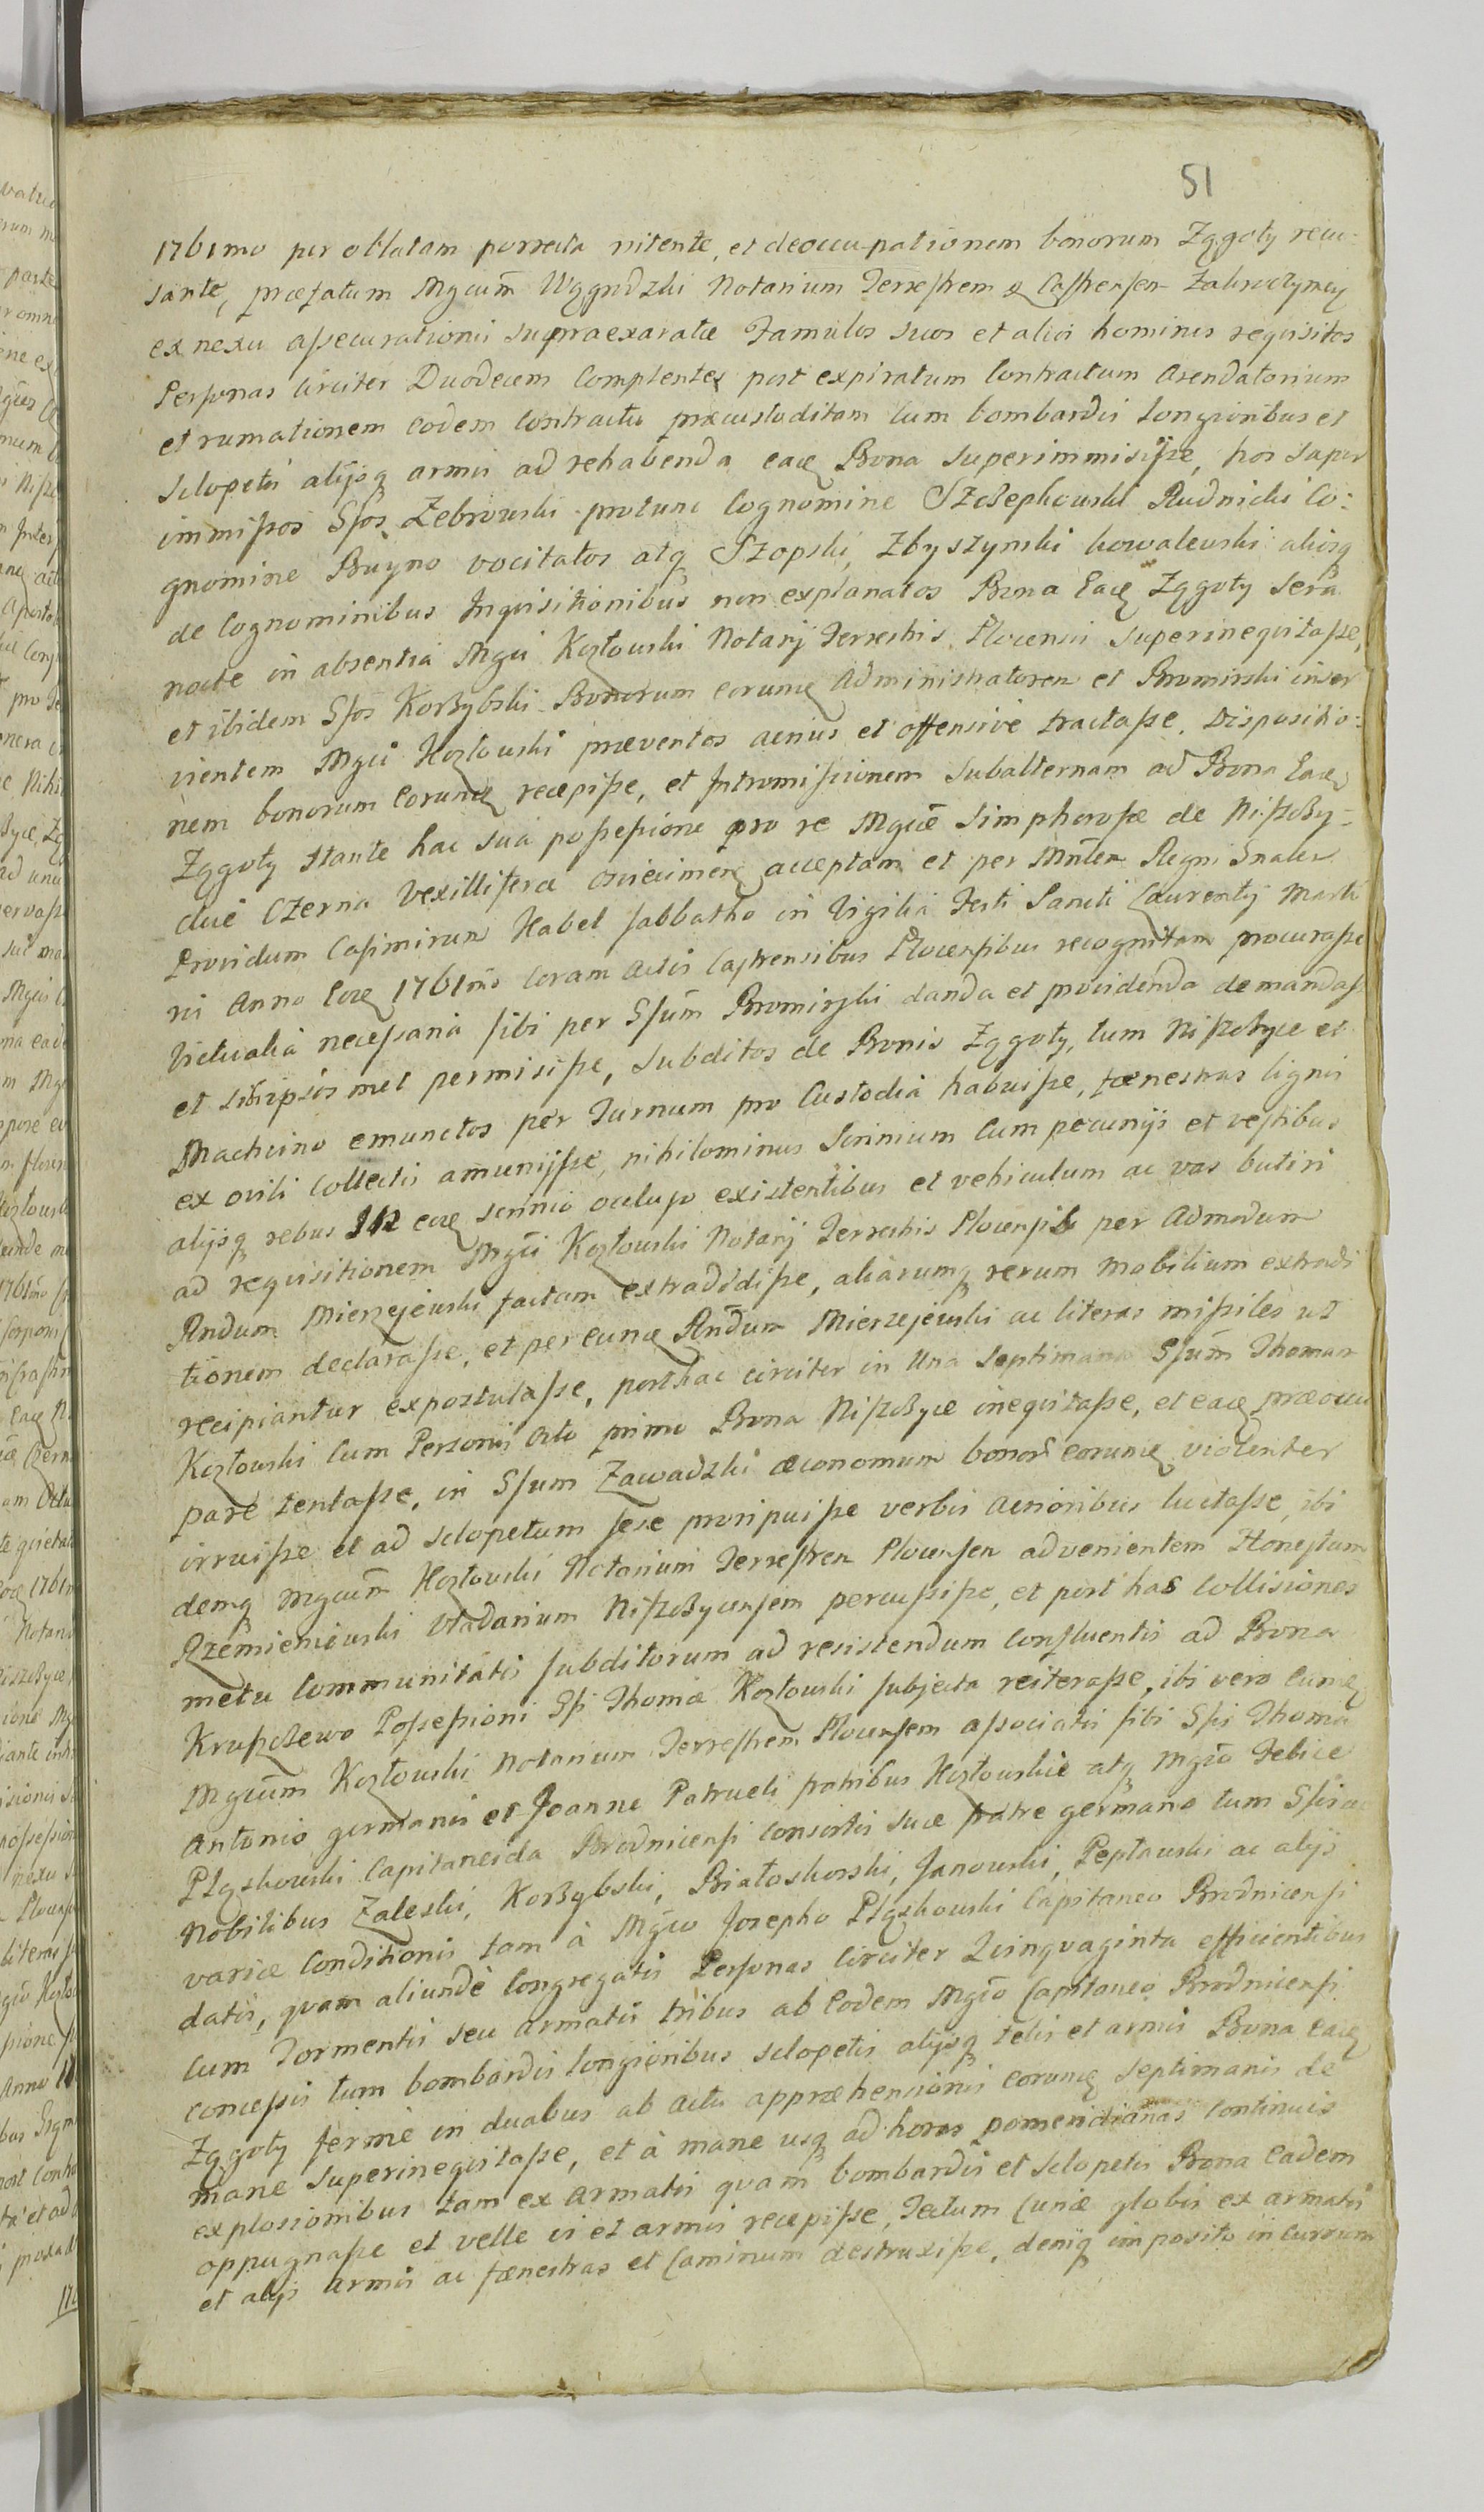 51
1761mo per oblatam porrecta nitente, et deoccupationem bonorum Zągoty recu:
sante, præfatum Mgcum Węgrdzki Notarium Terrestrem & Castrensem Zakroczymen
ex nexu assecurationis supraexaratæ Famulos suos et alios homines requisitos
Personas circiter Duodecem Complentes post expiratum Contractum Arendatorium
et rumationem eodem Contractu præcustoditam cum bombardis longioribus et
sclopetis alijsq armis ad rehabenda eaq Bona superimmisisse, hos super
immissos Gsos Zebrowski protunc Cognomine Szczepkowski Rudnicki Co:
gnomine Buyno vocitatos atq Szopski, Zbyszynski kowalewski aliosq
de Cognominibus Inquisitionibus non explanatos Bona Eaq Zągoty sera
nocte in absentia Mgci Kozłowski Notarij Terrestris Plocensis superinequitasse,
et ibidem Gsos Korzybski Bonorum eorumq Administratorem et Bromirski inser
vientem Mgci Kozłowski præventos acrius et offensive tractasse, Dispositio:
nem bonorum eorumq recepisse, et Intromissionem subalternam ad Bona Eaq
Zągoty stante hac sua possessione pro re Mgcæ Simphorosæ de Niszczy-
ckie Czerna Vexilliferæ acceptam et per Mnlem Regni Gnalem
Providum Casimirum Habel sabbatho in Vigilia Festi Sancti Laurentij Marti
ris Anno Eoq 1761mo Coram Actis Castrensibus Plocensibus recognitam procurasse
Victualia necessaria sibi per Gsum Bromirski danda et providenda demandass
et sibi ipsis met permisisse, subditos de Bonis Zągoty, tum Niszczyce et
Machcino emunctos per Turnum pro Custodia habuisse, fœnestras lignis
ex ovili Collectis amunijsse, nihilominus Scrinium Cum pecunijs et vestibus
alijsq rebus In eoq scrinio occluso existentibus et vehiculum ac vas butiri
ad requisitionem Mgci Kozłowski Notarij Terrestris Plocensis per Admodum
Rndum Mierzejewski factam extradidisse, aliarumq rerum mobilium extradi
tionem declarasse, et per eumq Rndum Mierzejewski ac literas missiles ut
recipiantur expostulasse, posthac circiter in Una Septimana Gsum Thomam
Kozłowski Cum Personis Octo primo Bona Niszczyce inequitasse, et eaq præoccu
pare tentasse, in Gsum Zawadzki œconomum bonor eorumq violenter
irruisse et ad sclopetum sese proripuisse verbis acrioribus luctasse, ibi
demq Mgcum Kozłowski Notarium Terrestrem Plocensem advenientem Honestum
Rzemieniewski Vladarium Niszczycensem percussisse, et post has Collisiones
metu Communitatis subditorum ad resistendum Confluentis ad Bona
Krupczewo Possessioni Gsi Thomæ Kozłowski subjecta reiterasse, ibi vero Eumq
Mgcum Kozłowski Notarium Terrestrem Plocensem associatis sibi Gsis Thoma
Antonio germanis et Joanne Patrueli fratribus Kozłowskie atq Mgco Felice
Pląskowski Capitaneida Brodnicensi Consortis suæ fratre germano tum Gsis ac
Nobilibus Zaleski, Korzybski, Białoskorski, Janowski, Peptowski ac alijs
variæ Conditionis tam à Mgco Josepho Pląskowski Capitaneo Brodnicensi
datis, quam aliunde Congregatis Personas Circiter Quinquaginta efficientibus
cum Tormentis seu armatis tribus ab Eodem Mgco Capitaneo Brodnicensi
concessis tum bombardis longioribus sclopetis alijsq telis et armis Bona eaq
Zągoty ferme in duabus ab actu appræhensionis eorumq septimanis de
mane superinequitasse, et à mane usq ad horas pomeridianas Continuis
explosionibus tam ex armatis quam bombardis et sclopetis Bona Eadem
oppugnasse et velle vi et armis recepisse, Tectum Curiæ globis ex armatis
et alijs armis ac fœnestras et Caminum destruxisse, deniq imposito in Currum